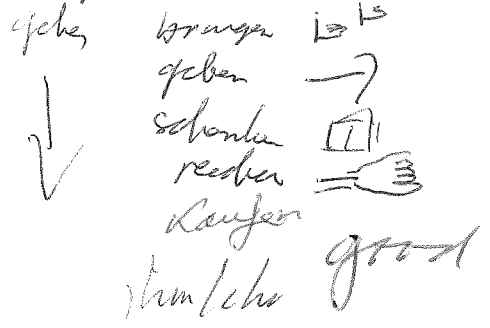 geben bringen
geben
schenken
reichen
kaufen
good
ihm/ihr